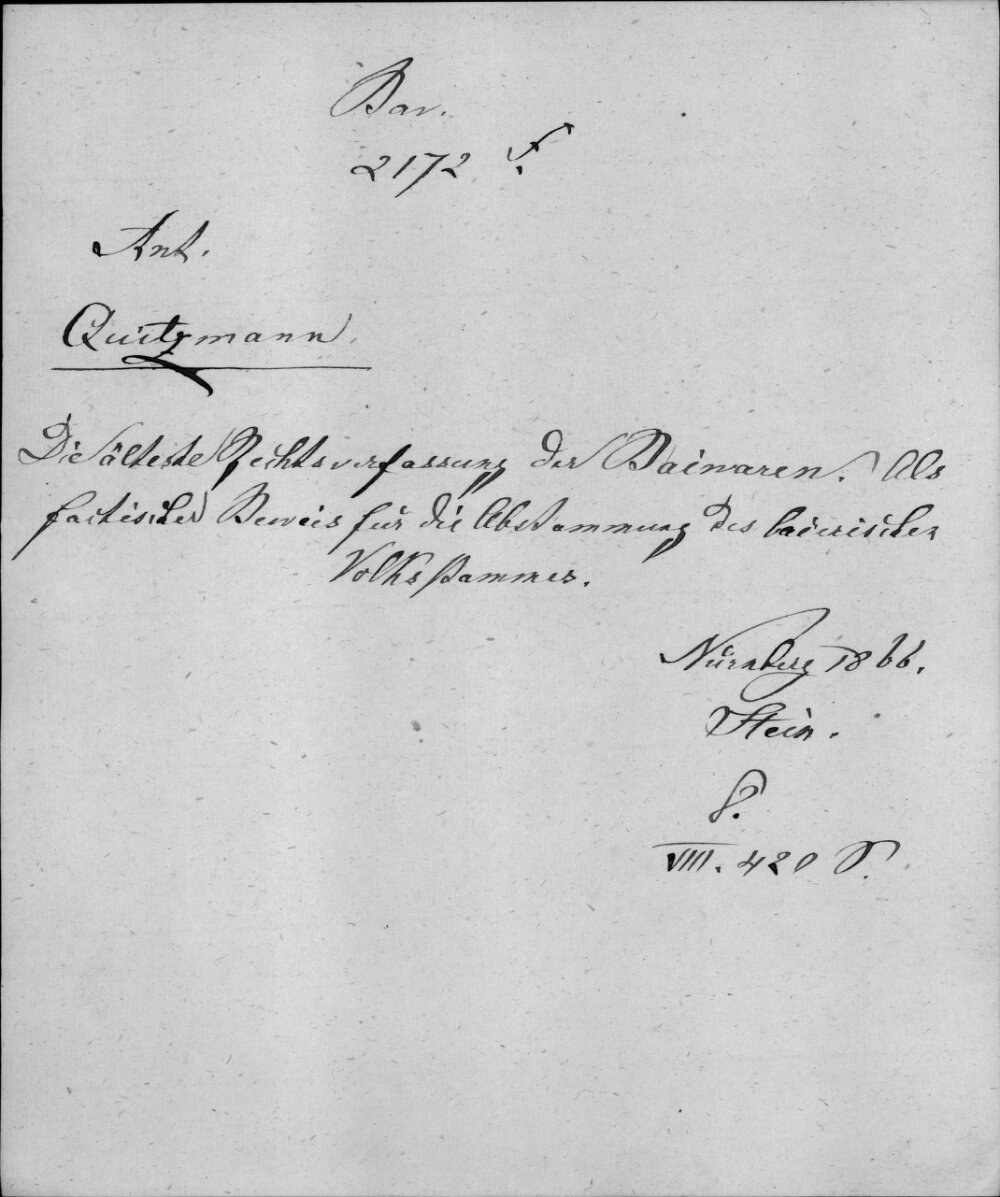 Bav.
2172 f.
Ant.
Quitzmann.
Die älteste Rechtsverfassung der Baiwaren. Als
factischer Beweis für die Abstammung des baierischen
Volksstammes.
Nürnberg 1866.
Stein.
8.
VIII. 420 S.